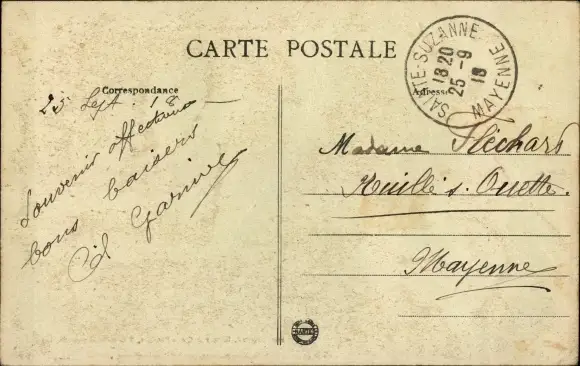 CARTE POSTALE
SAINTE-SUZANNE
18 20
25 -9
18
MAYENNE
Correspondance
Adresse
25 Sept. 18 —
Souvenir affectueux
bons baisers
Madame Fléchard
Ruillé s. Ouette.
Mayenne